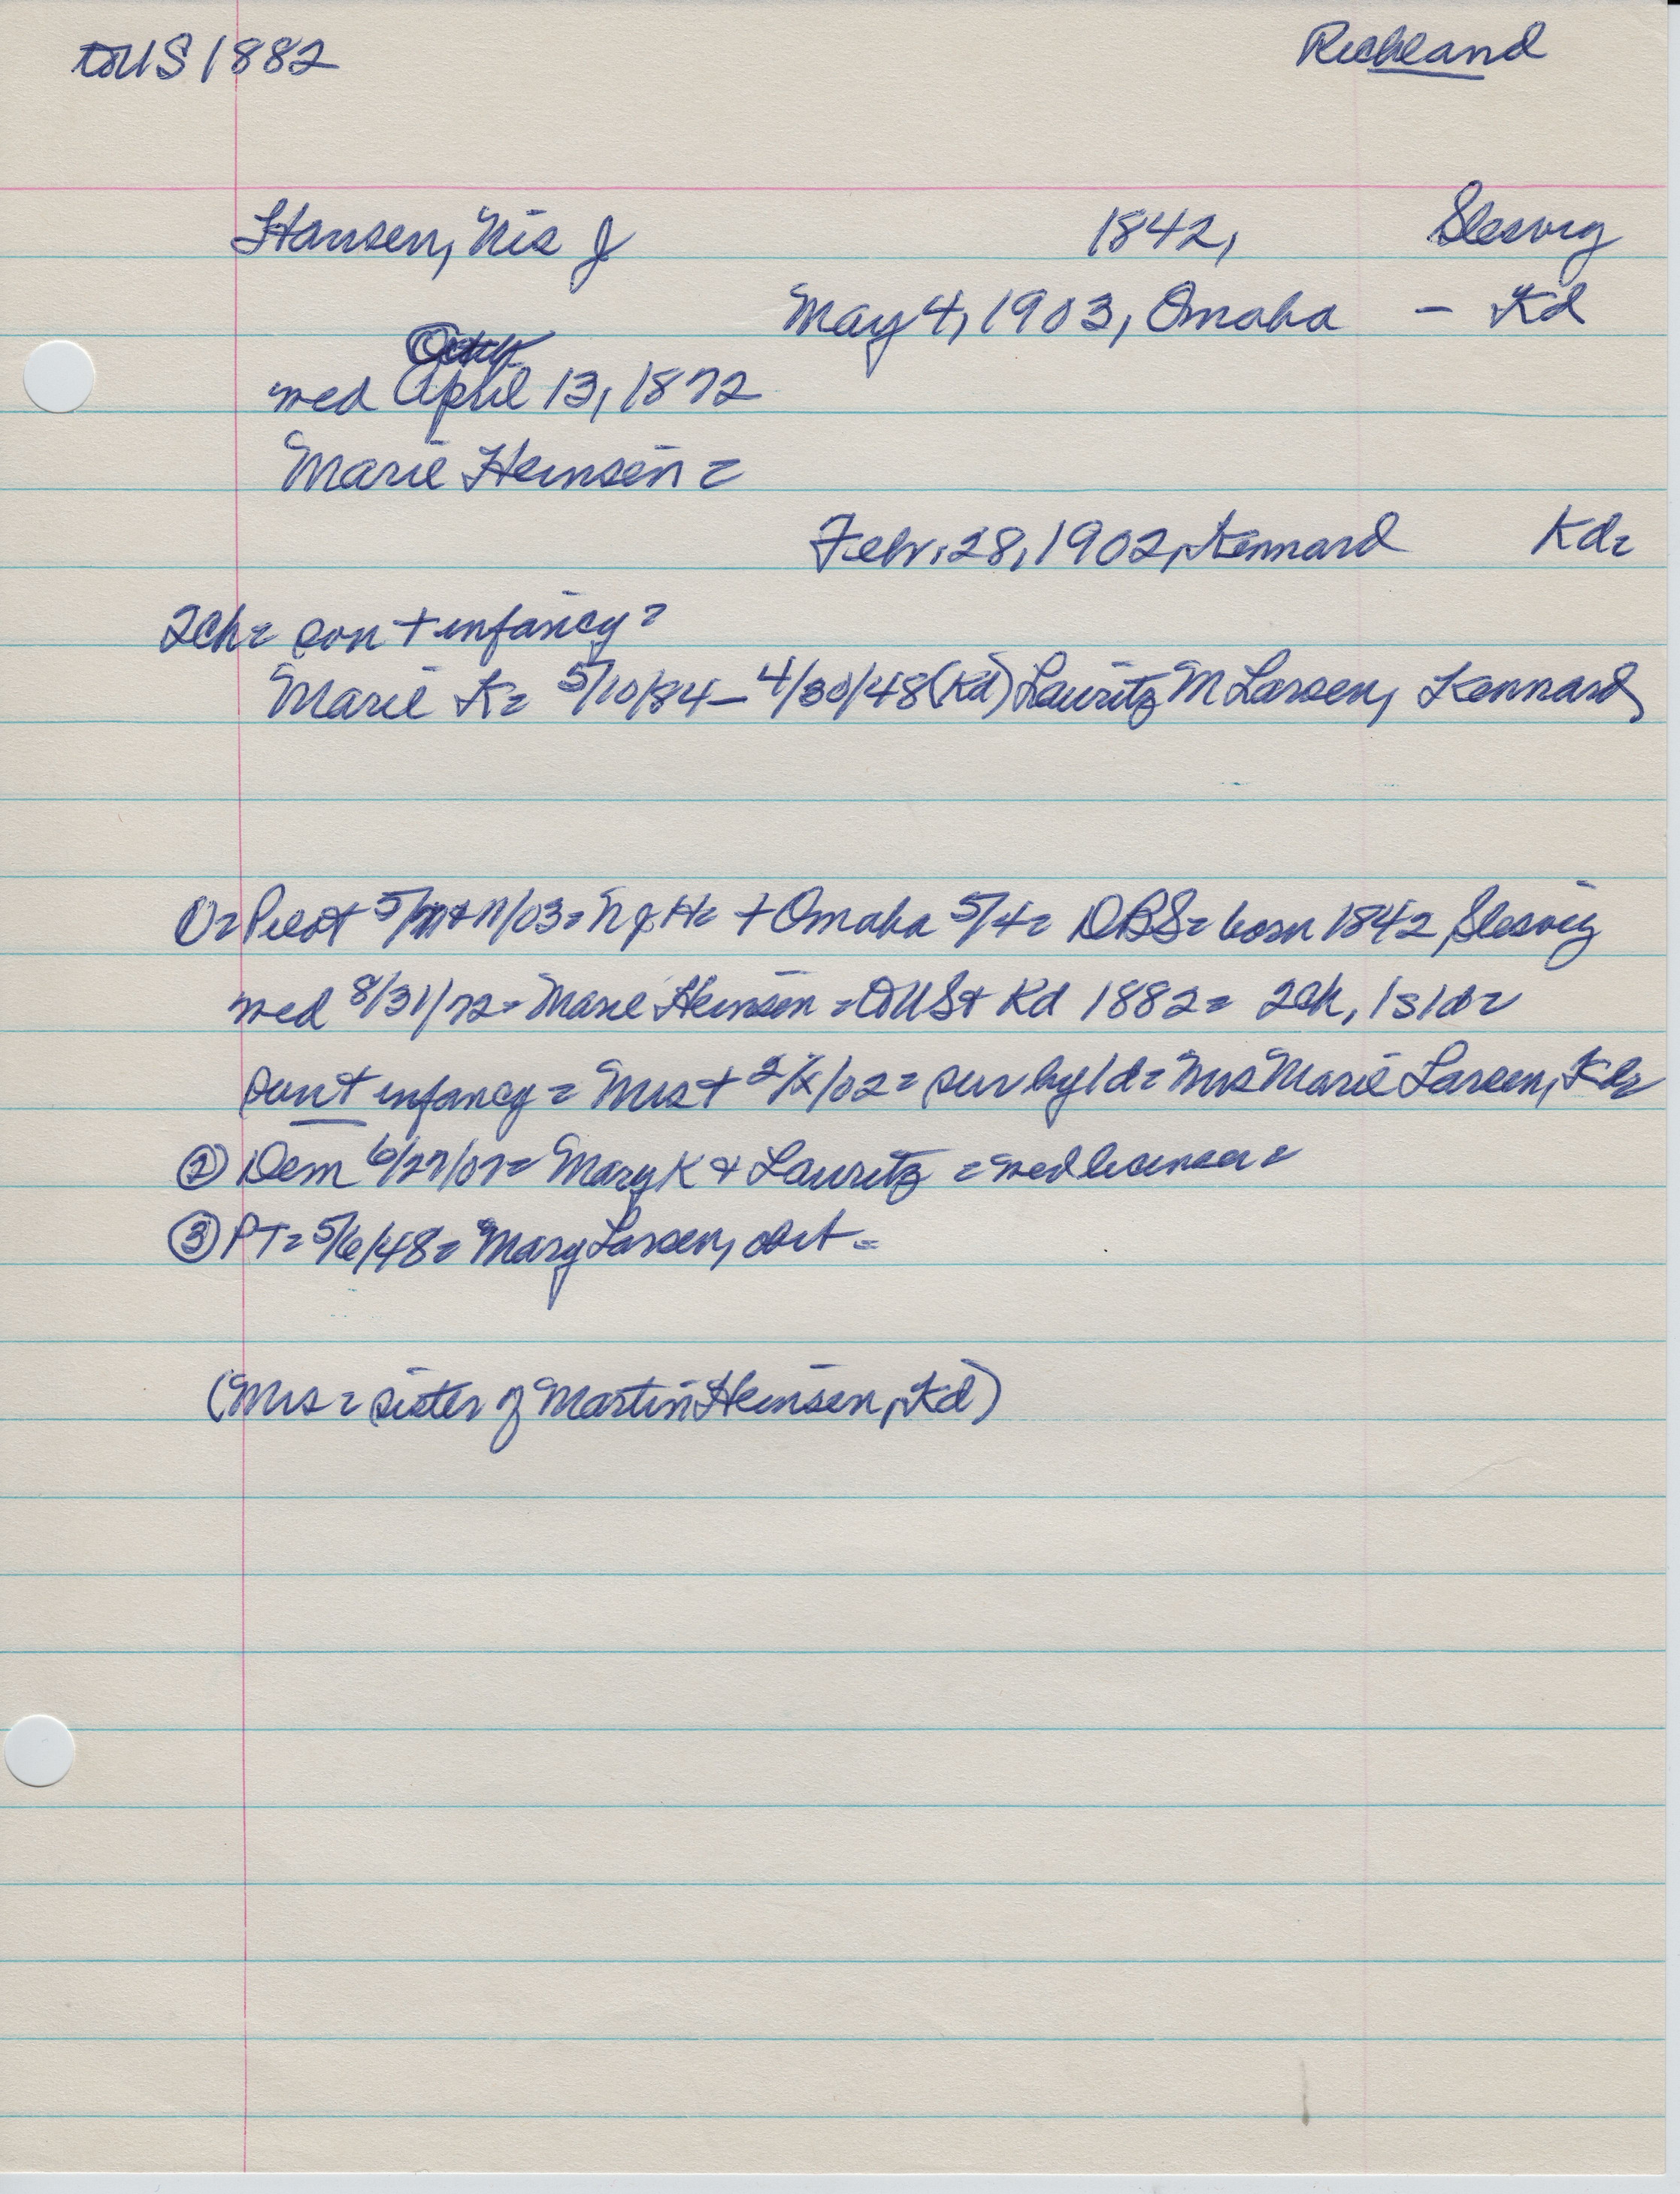 to US 1882
Richland
Hansen, Nis J 1842, Slesvig
May 4, 1903, Omaha – Kd
wed April 13, 1872
Marie Heinsen =
Febr. 28, 1902, Kennard Kd=
2ch = son + infancy =
Marie K = 5/10/84 – 4/30/48 (Kd) Lauritz M Larsen, Kennard
Pilot 5/ 11/03 = N J H = + Omaha 5/4 = DBS = born 1842 Slesvig
wed 8/31/72 = Marie Heinsen = to US + Kd 1882 = 2ch, 1s 1d =
son + infancy = Mrs + 2/ /02 = sur by 1 d = Mrs Marie Larsen, Kd=
② Dem 6/27/07 = Mary K + Lauritz = wed license =
③ PT = 5/6/48 = Mary Larsen, obit =
(Mrs = sister of Martin Heinsen, Kd)